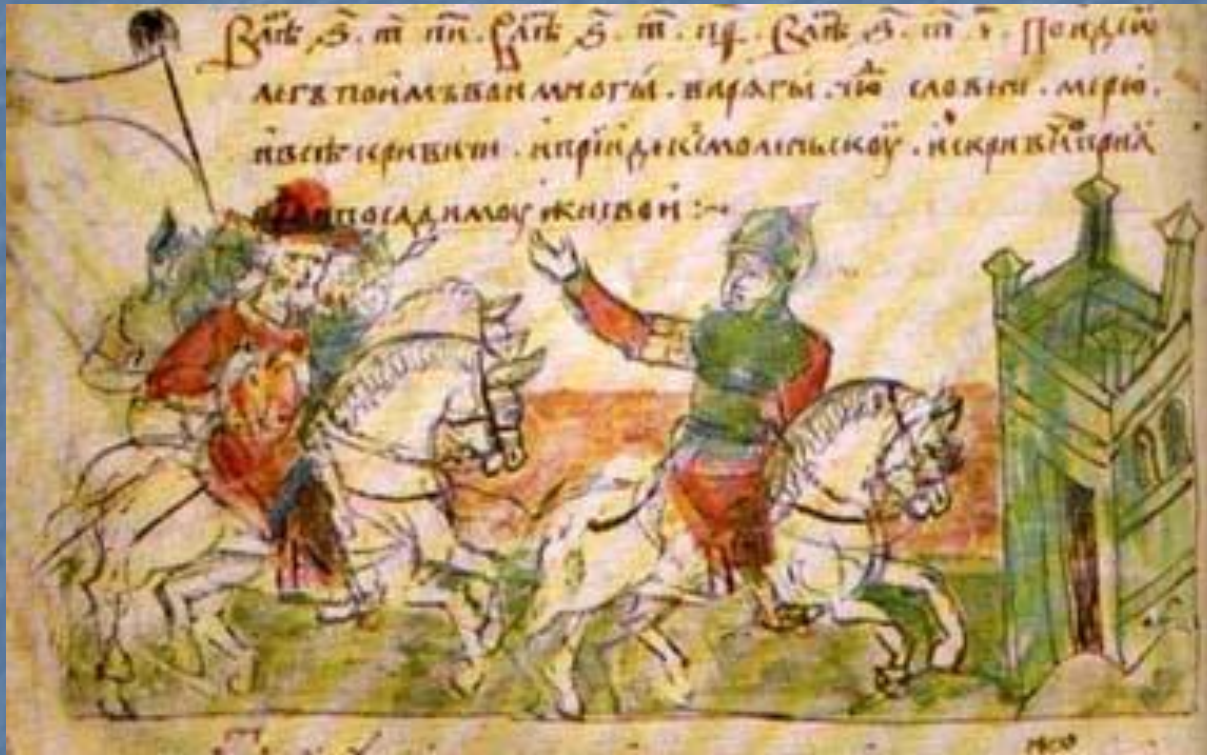 В лѣ ѕ҃ . т҃ . п҃и . В лѣ ѕ҃ . т҃ . В лѣ ѕ҃ . т҃ . Поиде ѡ
легъ поимъ вои многы . варѧгы . чю словени . мерю .
и всѣ кривичи . и прїиде к смоленьскоу . и с кривичи приꙗ
посади моужи свои :~